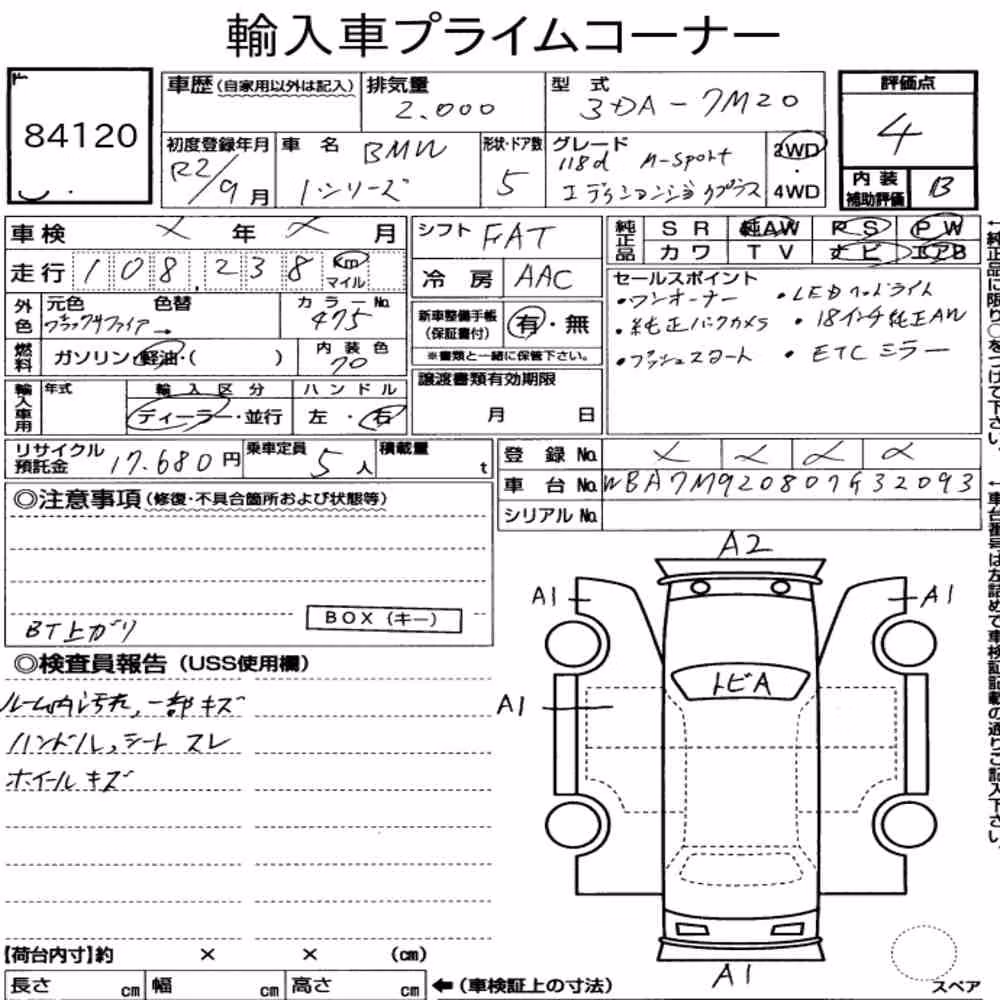 輸入車プライムコーナー
84120
車歴(自家用以外は記入) 排気量 2.000 型式 3DA-7M20
評価点 4
初度登録年月 R2/9月 車名 BMW 1シリーズ 形状・ドア数 5
グレード 118d M-Sport エディションジョイプラス 2WD・4WD
内装補助評価 B
車検 × 年 × 月
走行 108,238 Km マイル
外色 元色 ブラックサファイア→ 色替 カラーNo. 475
燃料 ガソリン・軽油・( ) 内装色 70
輸入車用 年式 輸入区分 ディーラー・並行 ハンドル 左・右
シフト FAT
冷房 AAC
新車整備手帳(保証書付) 有・無
※書類と一緒に保管下さい。
譲渡書類有効期限
月 日
純正品 SR 純AW PS PW
カワ TV ナビ エアB
セールスポイント
・ワンオーナー ・LEDヘッドライト
・純正バックカメラ ・18インチ純正AW
・プッシュスタート ・ETCミラー
←純正品に限り○をつけて下さい。
リサイクル預託金 17.680円 乗車定員 5人 積載量 t
登録No. × × × ×
車台No. WBA7M920807G32093
シリアルNo.
←車台番号は左詰めで車検証記載の通りご記入下さい。
◎注意事項(修復・不具合箇所および状態等)
BOX(キー)
BT上がり
◎検査員報告(USS使用欄)
ルーム内汚れ,一部キズ
ハンドル,シート スレ
ホイールキズ
A2
A1 A1
トビA
A1
A1
【荷台内寸】約 × × (cm)
長さ cm 幅 cm 高さ cm ←(車検証上の寸法)
スペア